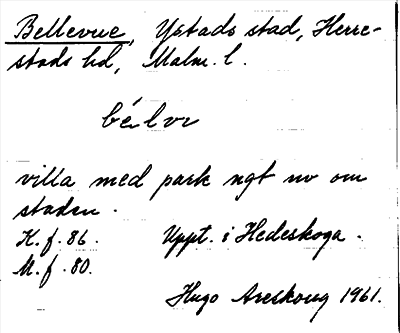 Bellevue, Ystads stad, Herre-
stads hd, Malm. l.
bélvi
villa med park ngt nv om
staden.
K. f. 86. Uppt. i Hedeskoga.
M. f. 80.
Hugo Areskoug 1961.